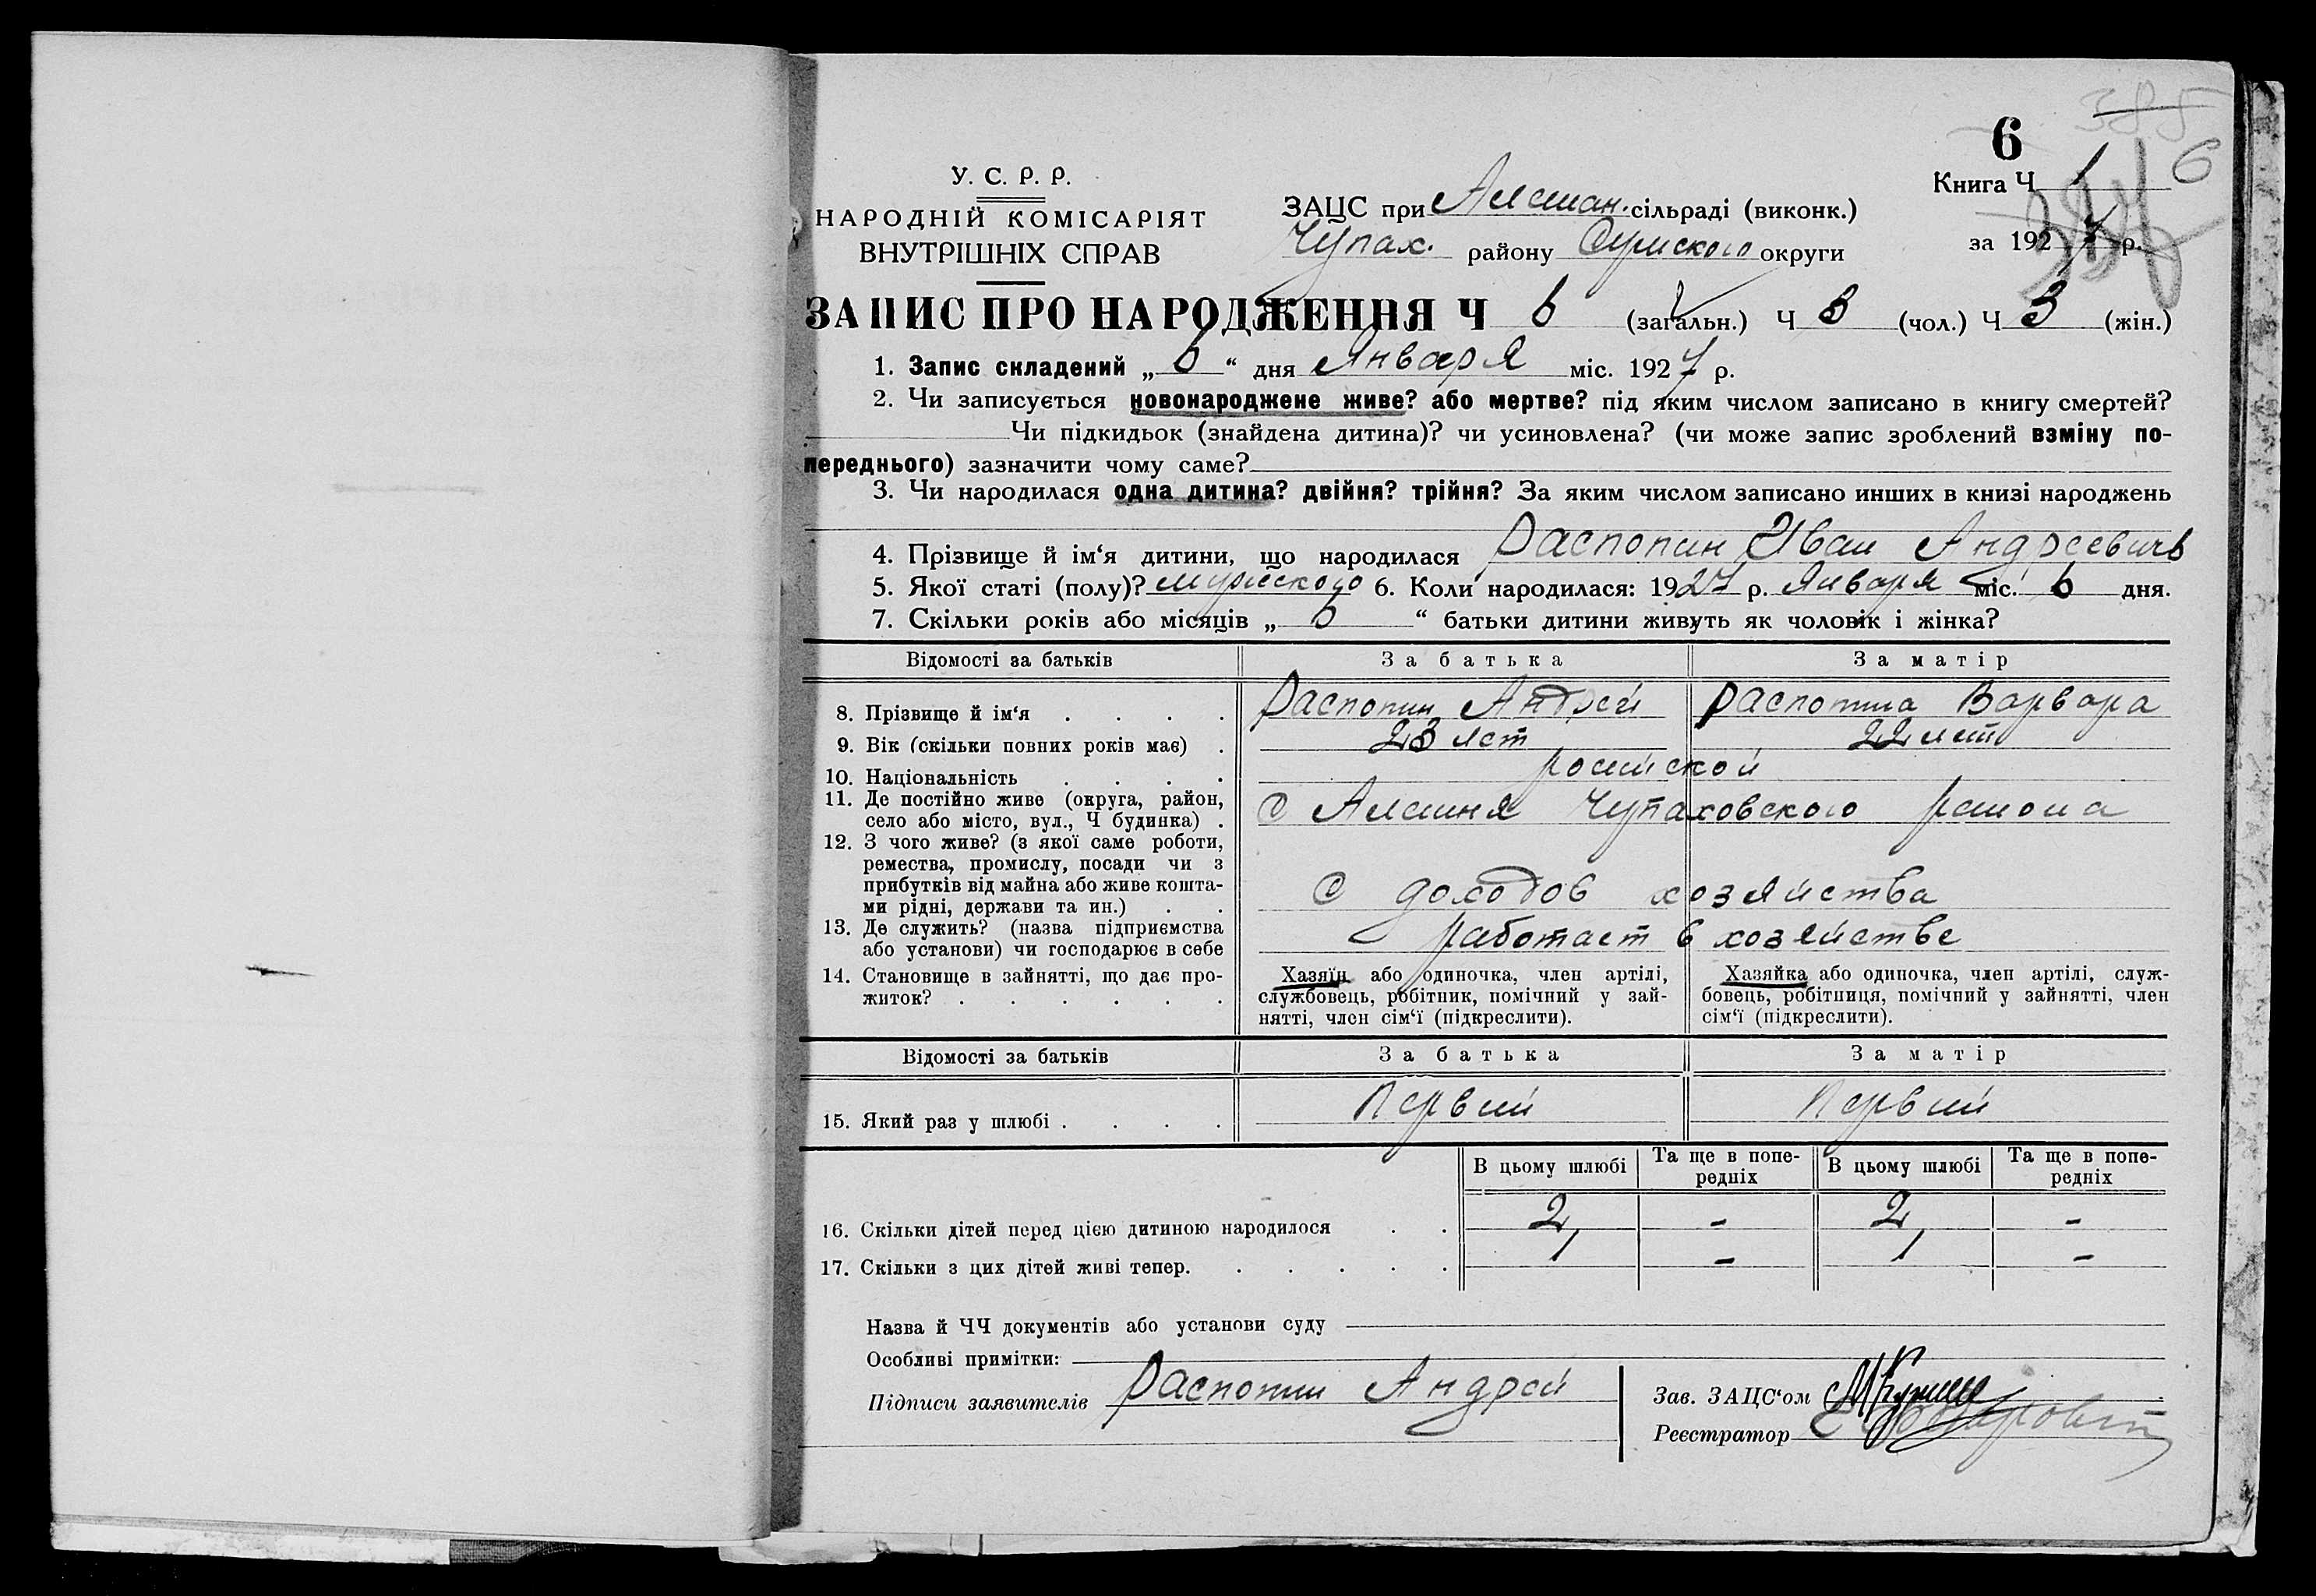 6
6
У. С. Р. Р.
НАРОДНІЙ КОМІСАРІЯТ
ВНУТРІШНІХ СПРАВ
ЗАЦС при Алешан. сільраді (виконк.)
Чупах. району Сумского округи
Книга Ч 1
за 1927 р.
ЗАПИС ПРО НАРОДЖЕННЯ Ч 6 (загальн.) Ч 3 (чол.) Ч 3 (жін.)
1. Запис складений „ 6 “ дня Января міс. 1927 р.
2. Чи записується новонароджене живе? або мертве? під яким числом записано в книгу смертей?
Чи підкидьок (знайдена дитина)? чи усиновлена? (чи може запис зроблений взміну по-
переднього) зазначити чому саме?
3. Чи народилася одна дитина? двійня? трійня? За яким числом записано инших в книзі народжень
4. Прізвище й ім‘я дитини, що народилася Распопин Иван Андреевичь
5. Якої статі (полу)? мужского 6. Коли народилася: 1927 р. Января міс. 6 дня.
7. Скільки років або місяців „ 6 “ батьки дитини живуть як чоловік і жінка?
Відомості за батьків За батька За матір
8. Прізвище й ім‘я . . . . Распопин Андрей Распопина Варвара
9. Вік (скільки повних років має) . 23 лет 22 лет
10. Національність . . . . росийской
11. Де постійно живе (округа, район,
село або місто, вул., Ч будинка) . С Алешня Чупаховского района
12. З чого живе? (з якої саме роботи,
ремества, промислу, посади чи з
прибутків від майна або живе кошта-
ми рідні, держави та ин.) . . С доходов хозяйства
13. Де служить? (назва підприємства
або установи) чи господарює в себе работает в хозяйстве
14. Становище в зайнятті, що дає про-
житок? . . . . . .
Хазяїн або одиночка, член артілі,
службовець, робітник, помічний у зай-
нятті, член сім‘ї (підкреслити).
Хазяйка або одиночка, член артілі, служ-
бовець, робітниця, помічний у зайнятті, член
сім‘ї (підкреслити).
Відомості за батьків За батька За матір
15. Який раз у шлюбі . . . . Первий Первий
В цьому шлюбі Та ще в попе-
редніх В цьому шлюбі Та ще в попе-
редніх
16. Скільки дітей перед цією дитиною народилося . . 2 - 2 -
17. Скільки з цих дітей живі тепер. . . . . . 1 - 1 -
Назва й ЧЧ документів або установи суду
Особливі примітки:
Підписи заявителів Распопин Андрей
Зав. ЗАЦС‘ом
Реєстратор